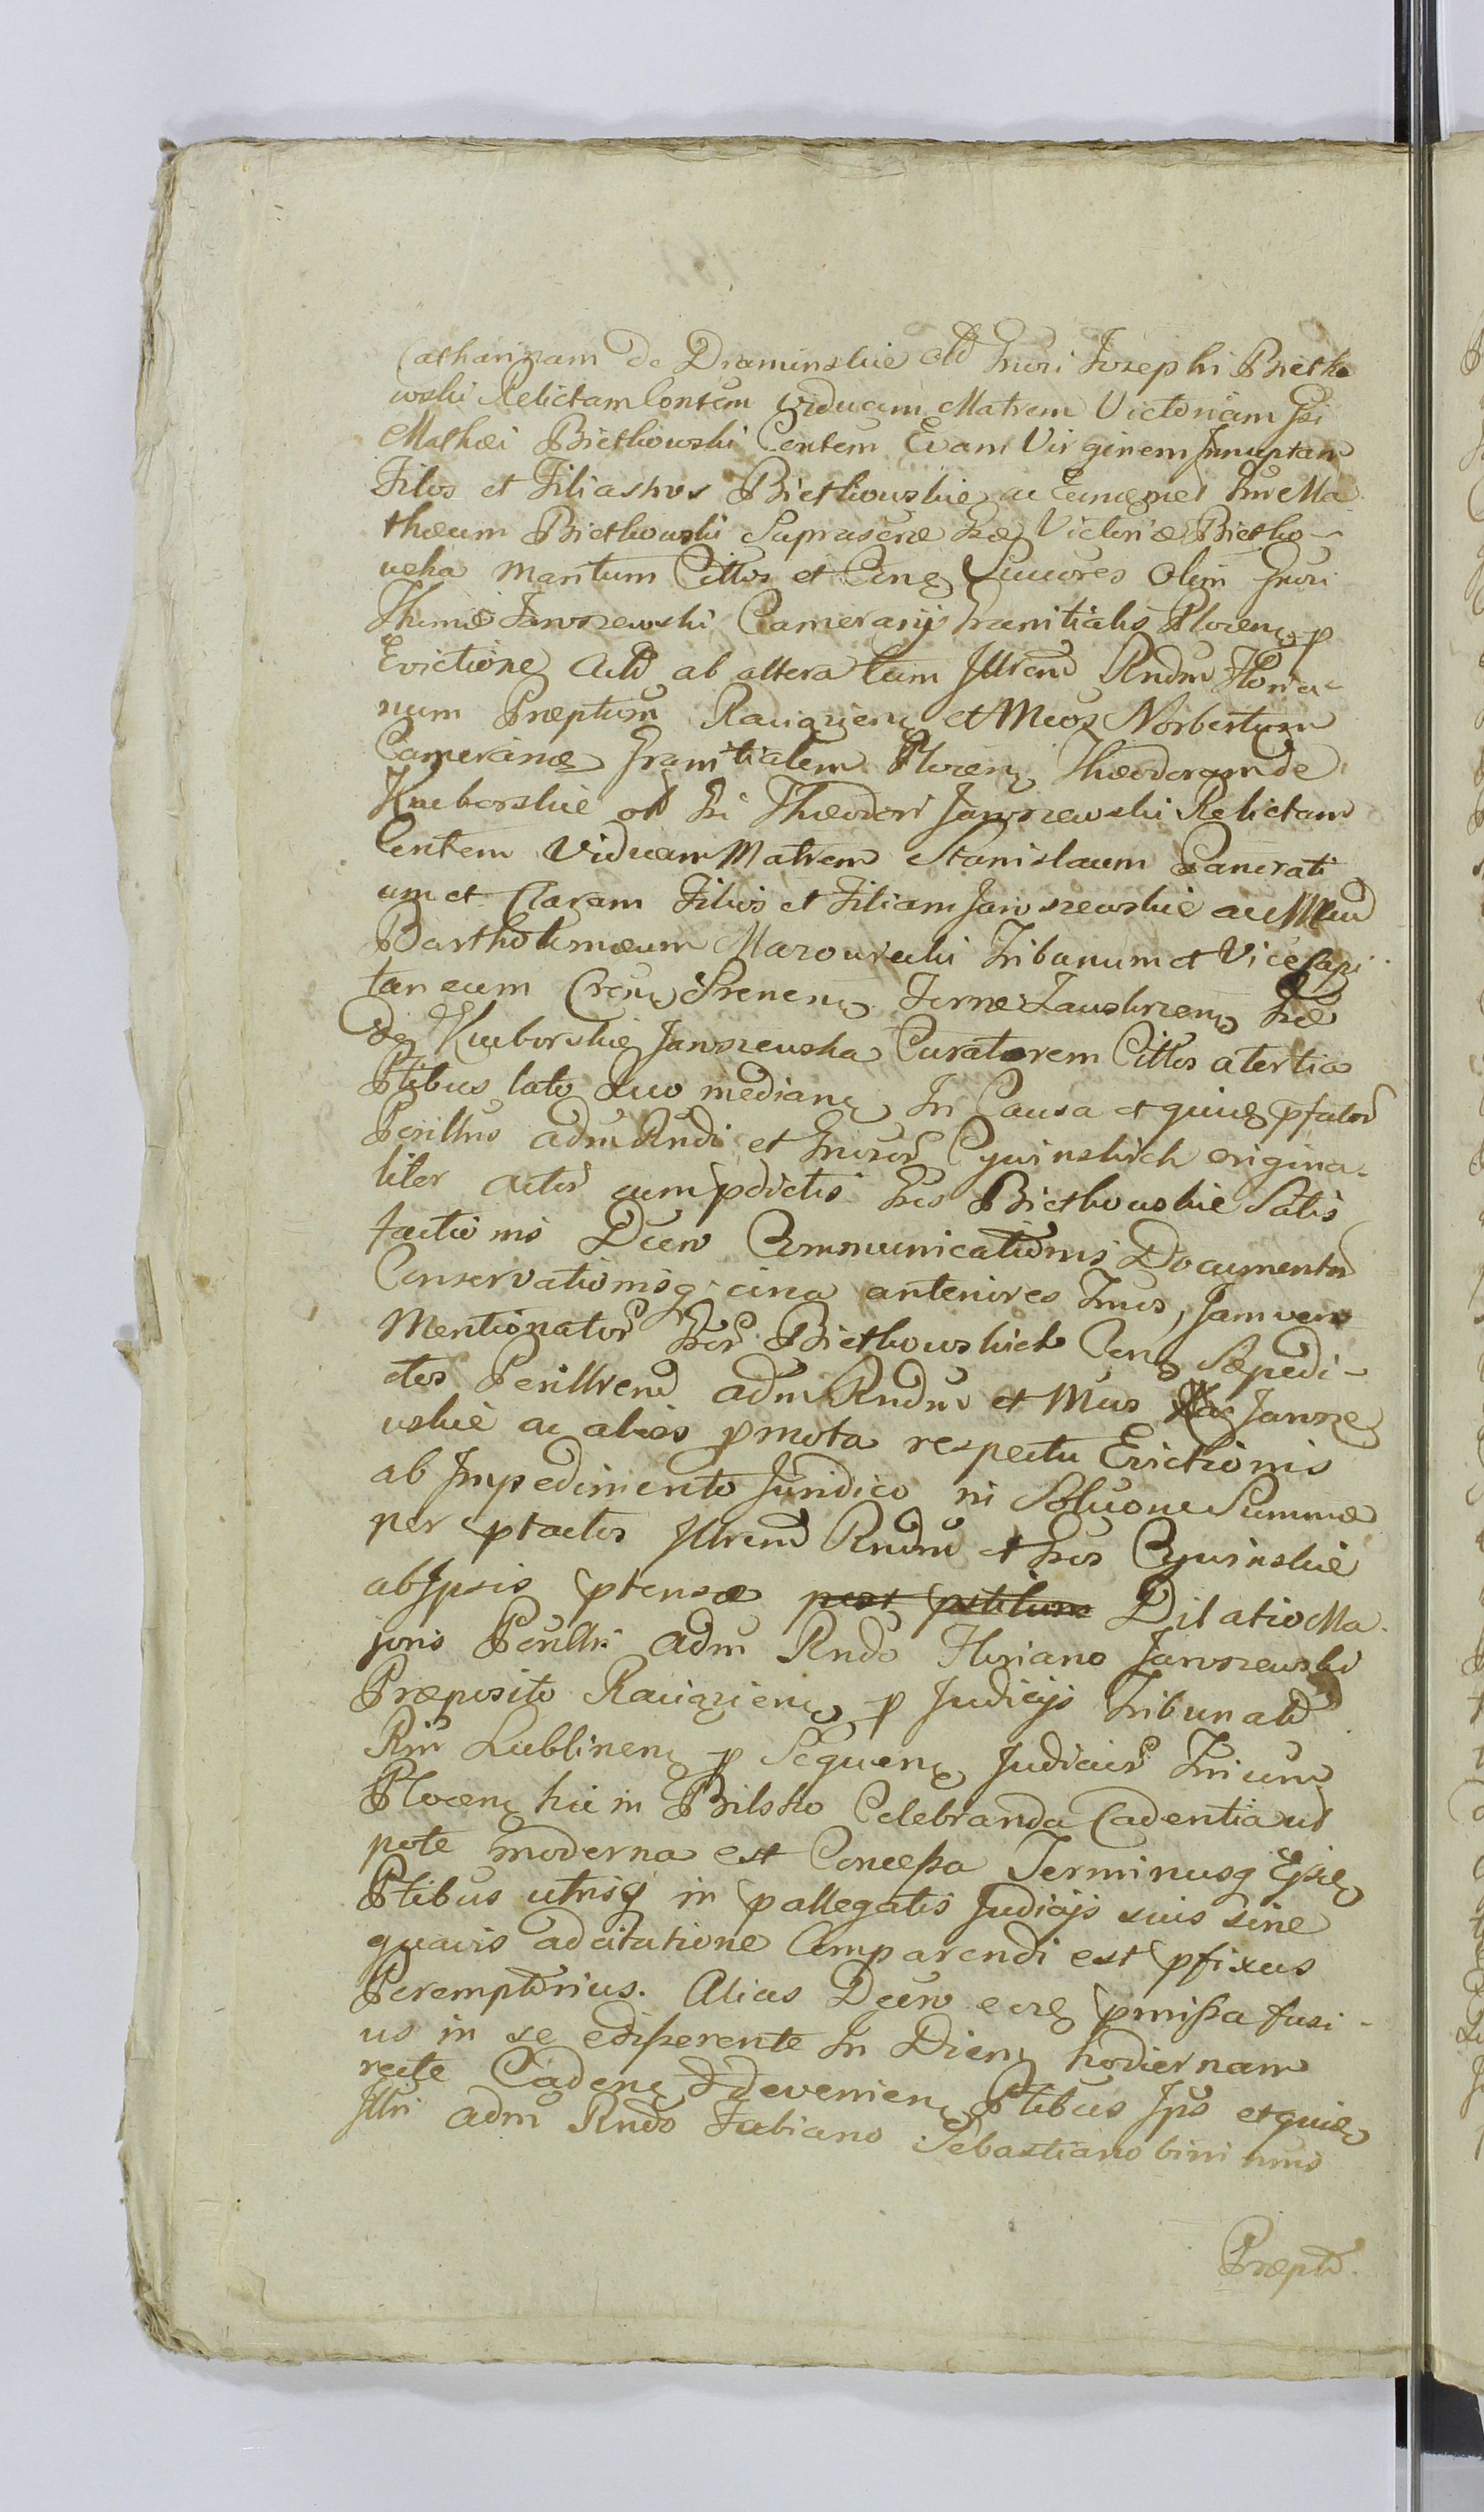 Catharinam de Draminskie olim Gnosi Josephi Bietko
wski Relictam Contem Viduam Matrem Victoriam Gsi
Mathæi Bietkowski Contem Evam Virginem Innuptam
Filos et Filiastros Bietkowskie ac eundmet Gnrm Ma
thæum Bietkowski Suprascræ Gsæ Victoriæ Bietko-
wska Maritum Cittos et Conq Succores Olim Gnosi
Thomæ Jaroszewski Camerarij Granitialis Plocenq p
Evictione Acta ab altera tum Jllrem Rndm Floria-
num Præptum Raciązienq et Mcos Norbertum
Camerariæ Granitialem Plocenq Theodoram de
Kuborskie olim Gsi Theodori Jaroszewski Relictam
Contem Viduam Matrem Stanislaum Pancrati
um et Claram Filios et Filiam Jaroszewskie ac Mcum
Bartholomæum Mazowiecki Tribunum et Vice Capi
taneum Crens Srenenq Terræ Zauskrzenq Gsæ
de Kuborskie Jaroszewska Curatorem Cittos a tertia
Ptibus lato quo medianq In Causa et quiq pfator
Perillus adm Rndi et Gnosor Cywinskich origina-
liter actor cum pdictis Gsos Bietkowskie Satis
factionis Decro Communicationis Documentor
Conservationisq circa anteriores Tmos, Jam vero
Mentionator Gsor Bietkowskich Conq Sæpedi-
ctos Perillrem adm Rndm et Mcos Jarosze
wskie ac alios pmota respectu Evictionis
ab Impedimento Juridico in Solucone Summæ
per ptactos Jllrem Rndm et Gsos Cywinskie
ab Ipsis ptensæ post pstitum Dilatio Ma-
joris Perillri adm Rndo Floriano Jaroszewski
Præposito Raciązienq p Judicijs Tribunal
Rni Lublinenq p Sequenq Judicior Trium
Plocenq hic in Bilsko Celebranda Cadentia ut
pote moderna est Concessa Terminusq Ejsq
Ptibus utrisq in pallegatis Judicijs suis sine
quavis adcitatione Comparendi est pfixus
Peremptorius. Alias Decro eorq pmissa fusi-
us in se edisserente In Diem hodiernam
recte Cadenq & devenienq Ptibus Ips et quiq
Jllri adm Rndo Fabiano Sebastiano bini nmis
Præpto.